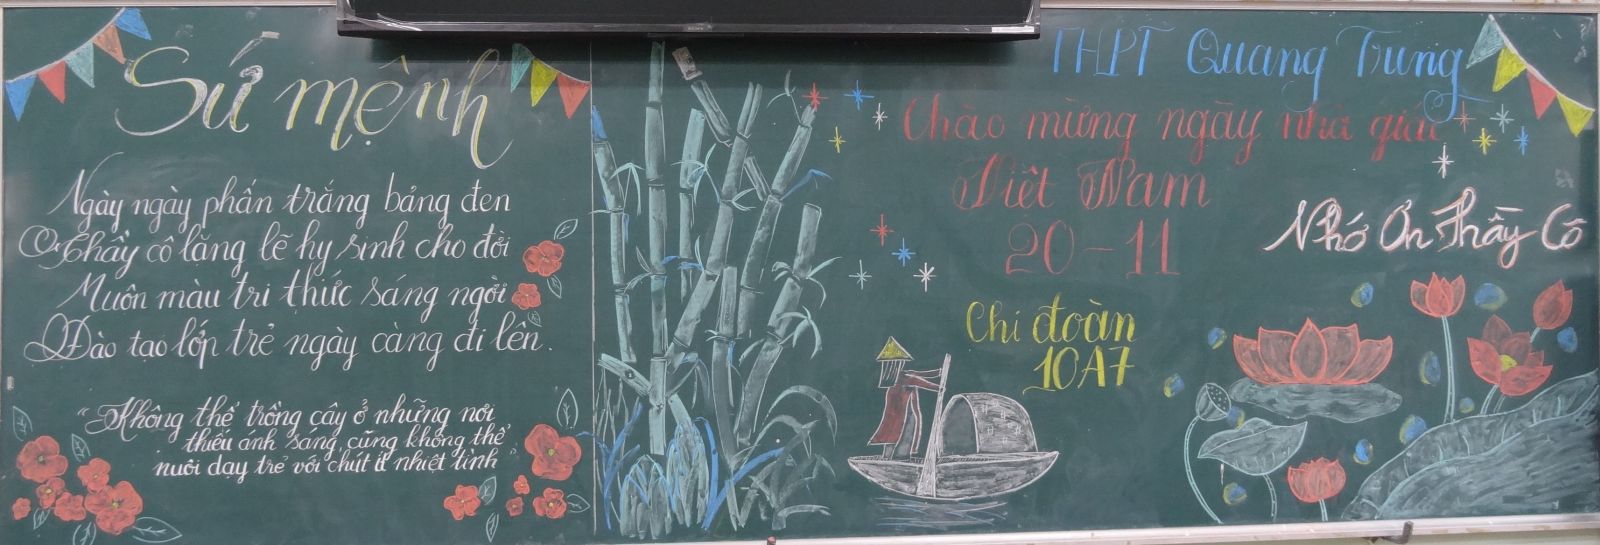 Sứ mệnh
Ngày ngày phấn trắng bảng đen
Thầy cô lặng lẽ hy sinh cho đời
Muôn màu tri thức sáng ngời
Đào tạo lớp trẻ ngày càng đi lên.
"Không thể trồng cây ở những nơi
thiếu ánh sáng, cũng không thể
nuôi dạy trẻ với chút ít nhiệt tình"
THPT Quang Trung
Chào mừng ngày nhà giáo
Việt Nam
20-11
Nhớ Ơn Thầy Cô
Chi đoàn
10A7